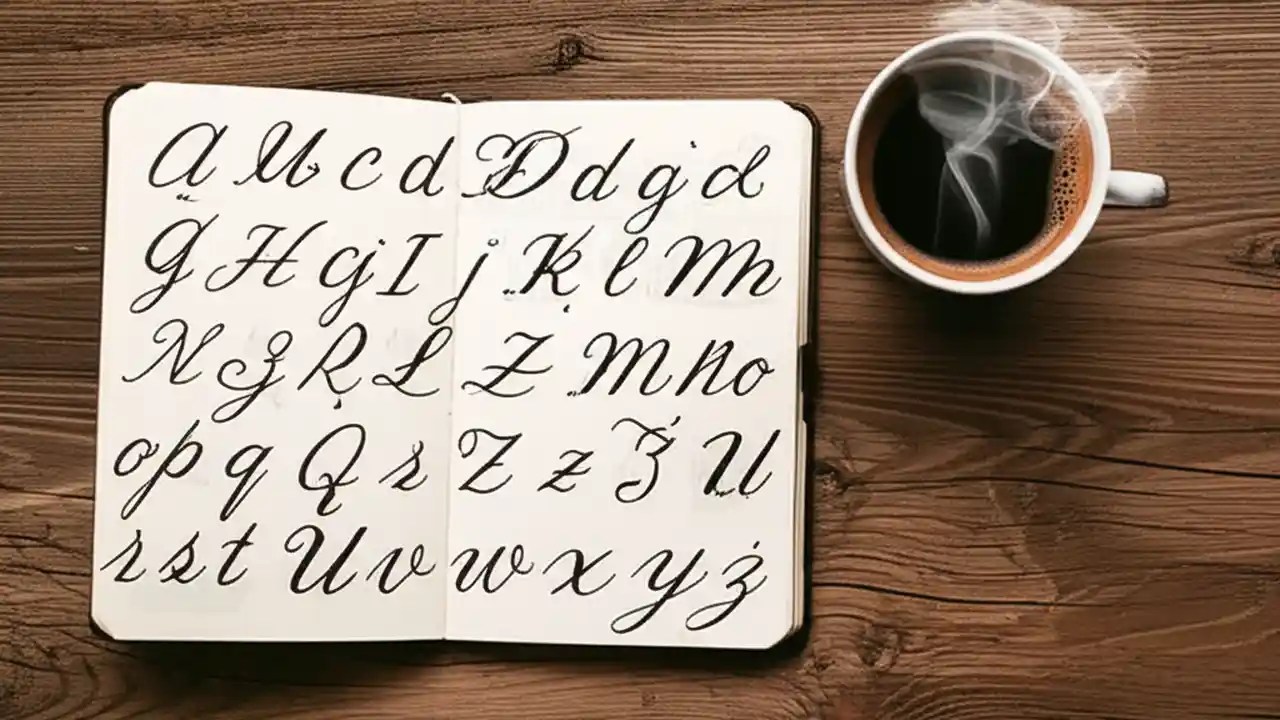 a U c d D d g d
G H g I j K l M
N Z R L Z M n o
o p q Q s Z z Z U
r s t U v w x y z